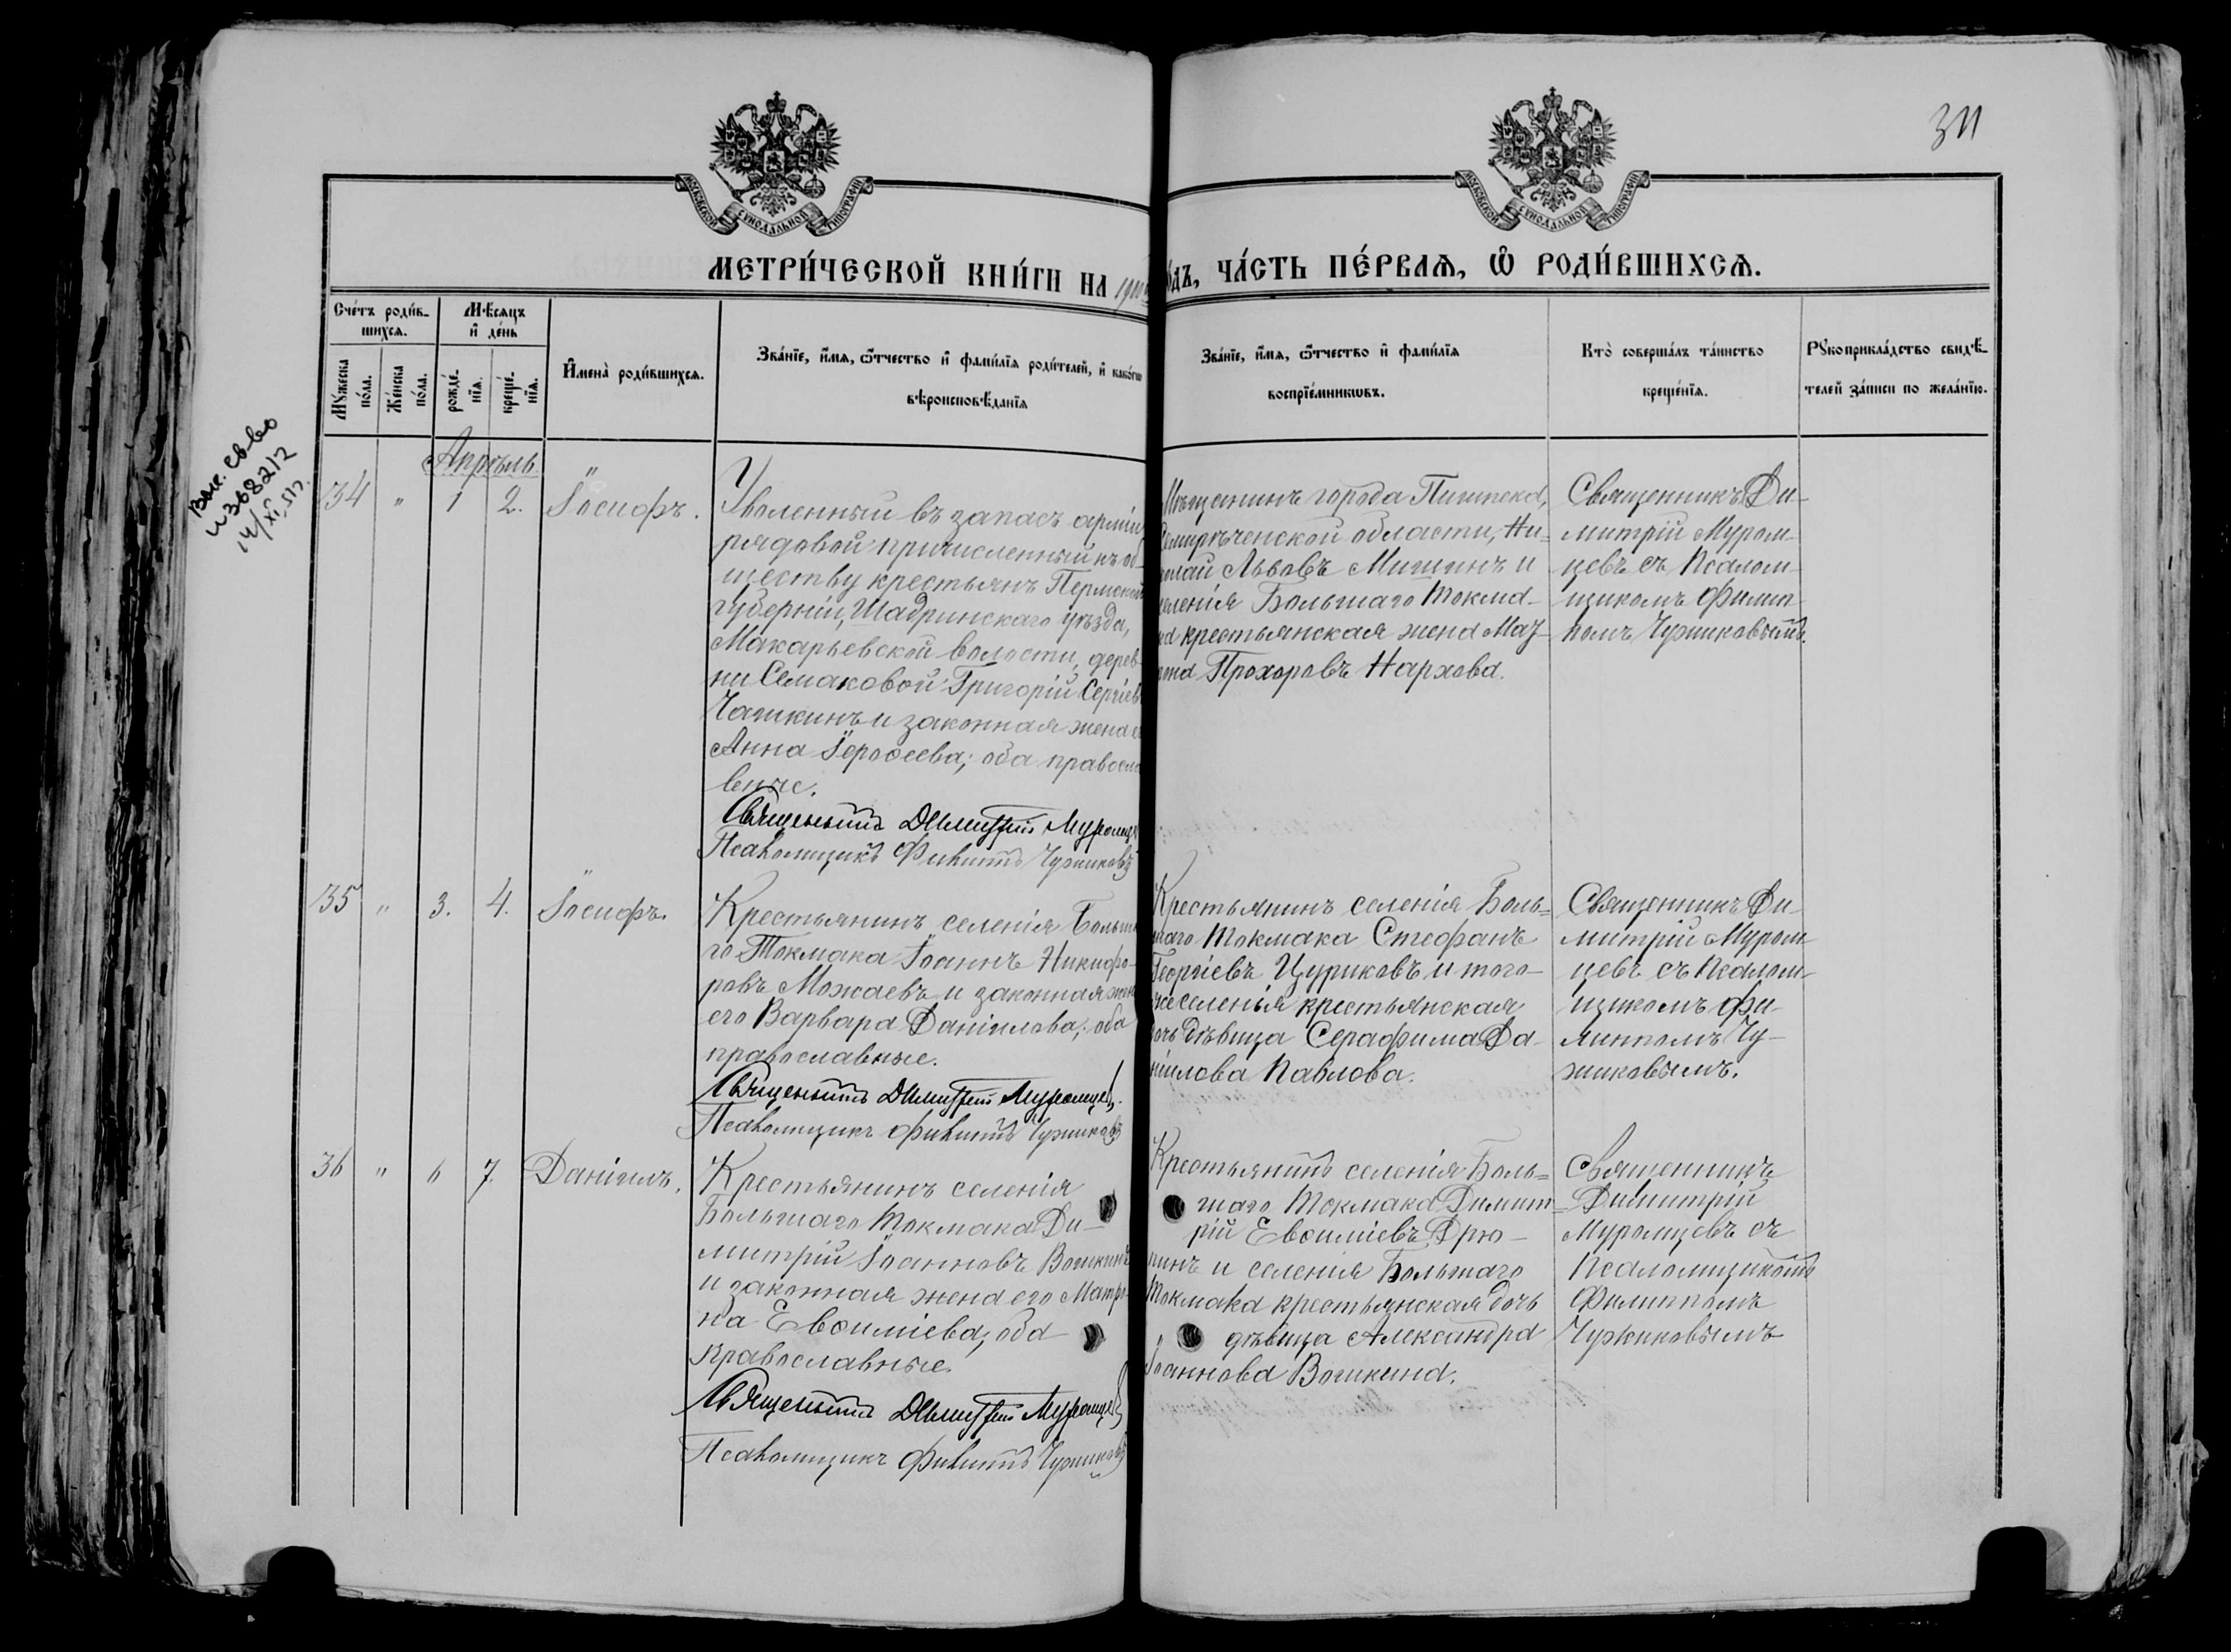 311
МОСКОВСКОЙ СѴНОДАЛЬНОЙ ТИПОГРАФІИ
МОСКОВСКОЙ СѴНОДАЛЬНОЙ ТИПОГРАФІИ
МЕТРИ́ЧЕСКОЙ КНИ́ГИ НА 1900 ГО́ДЪ, ЧА́СТЬ ПЕ́РВАѦ, Ѡ҆ РОДИ́ВШИХСѦ.
Сче́тъ роди́в-
шихсѧ.
Мꙋ́жеска по́ла.
Же́нска по́ла.
Мѣ́сѧцъ
и҆ де́нь
рожде́-
нїѧ.
креще́-
нїѧ.
И҆мена̀ роди́вшихсѧ.
Зва́нїе, и҆́мѧ, ѻ҆́тчество и҆ фами́лїѧ роди́телей, и҆ како́гѡ
вѣроисповѣ́данїѧ
Зва́нїе, и҆́мѧ, ѻ҆́тчество и҆ фами́лїѧ
воспрїе́мникѡвъ.
Кто̀ соверша́лъ та́инство
креще́нїѧ.
Рꙋкоприкла́дство свидѣ́-
телей за́писи по жела́нїю.
св-во
368212
Апрѣль
34 " 1 2. Іосифъ.
Уволенный въ запасъ арміи
рядовой причисленный къ об-
ществу крестьянъ Пермской
губерніи, Шадринскаго уѣзда,
Макарьевской волости, дерев-
ни Семаковой Григорій Сергіев
Чашкинъ и законная жена е
Анна Іероѳеева; оба правосла
вные.
Священникъ Димитрій Муромце
Псаломщикъ Филиппъ Чужиковъ
Мѣщанинъ города Пишпека,
Семирѣченской области, Ни-
колай Львовъ Мишинъ и
селенія Большаго Токма-
ка крестьянская жена
Прохоровъ Нархова.
Священникъ Ди-
митрій Муром-
цевъ съ Псалом-
щикомъ Филип-
помъ Чужиковымъ.
35 " 3. 4. Іосифъ.
Крестьянинъ селенія Больша
го Токмака Іоаннъ Никифо-
ровъ Можаевъ и законная жен
его Варвара Даніилова; оба
православные.
Священникъ Димитрій Муромцев
Псаломщикъ Филиппъ Чужиковъ
Крестьянинъ селенія Боль-
шаго Токмака Стефанъ
Георгіевъ Цуриковъ и того-
же селенія крестьянская
дочь дѣвица Серафима Да-
ніилова Павлова.
Священникъ Ди-
митрій Муром-
цевъ съ Псалом-
щикомъ Фи-
липпомъ Чу-
жиковымъ.
36 " 6 7. Даніилъ.
Крестьянинъ селенія
Большаго Токмака Ди-
митрій Іоанновъ Вошкинъ
и законная жена его Матро-
на Евѳиміева; оба
православные.
Священникъ Димитрій Муромцев
Псаломщикъ Филиппъ Чужиковъ
Крестьянинъ селенія Боль-
шаго Токмака Димит-
рій Евѳиміевъ Дрю-
пинъ и селенія Большаго
Токмака крестьянская дочь
дѣвица Александра
Іоаннова Вошкина.
Священникъ
Димитрій
Муромцевъ съ
Псаломщикомъ
Филиппомъ
Чужиковымъ